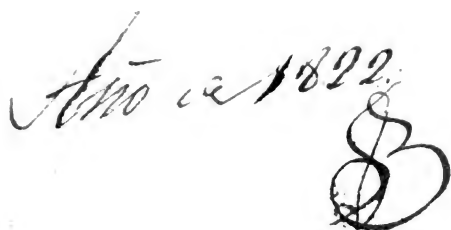 Año de 1822.